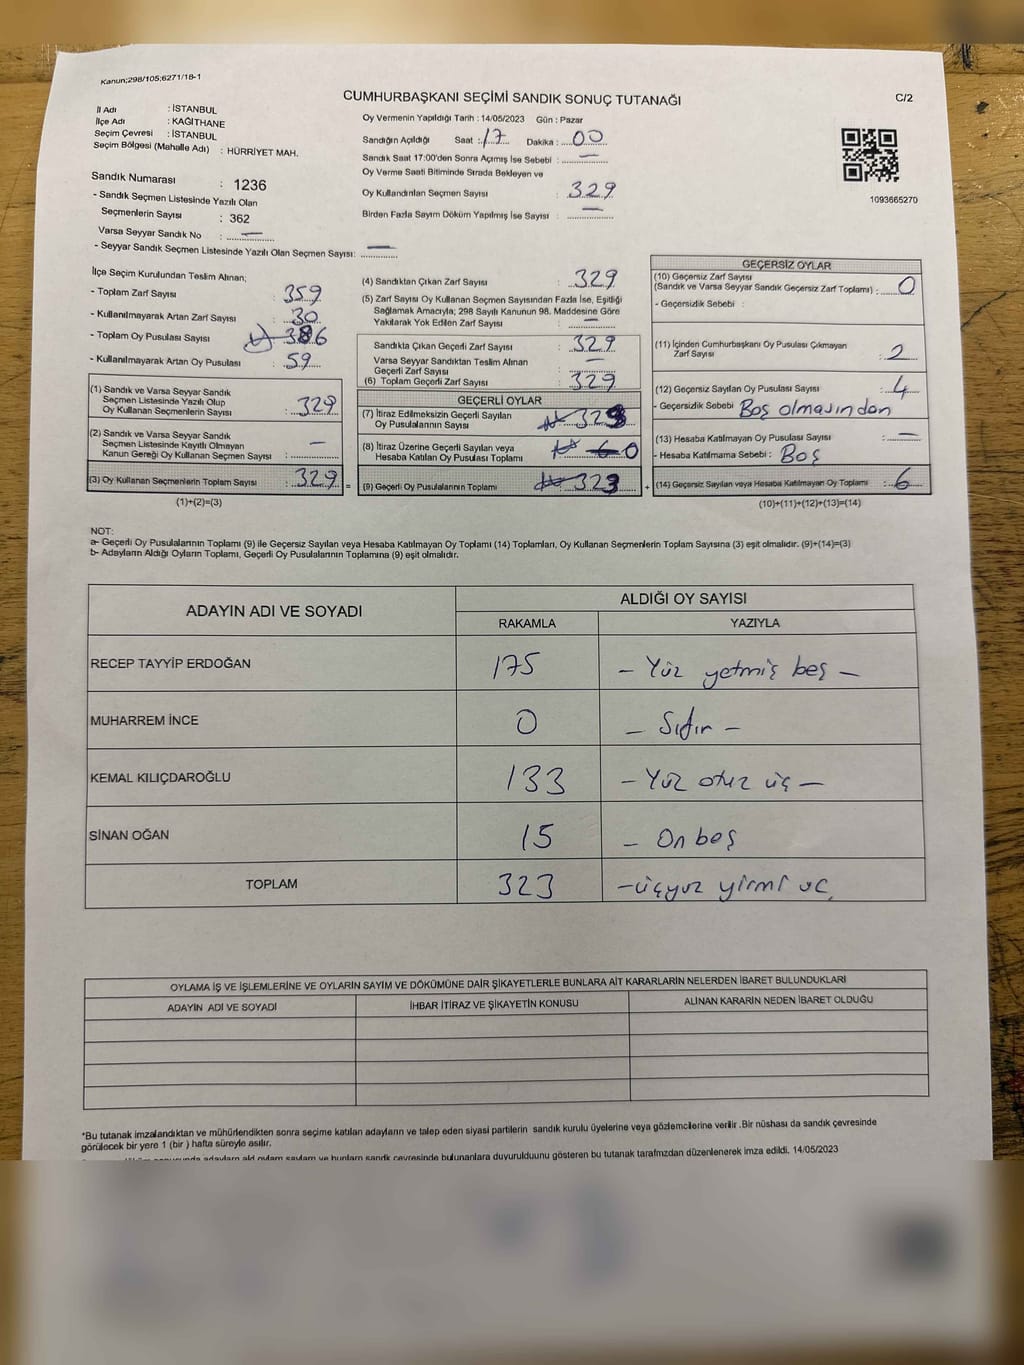 Kanun;298/105;6271/18-1
CUMHURBAŞKANI SEÇİMİ SANDIK SONUÇ TUTANAĞI
C/2
İl Adı : İSTANBUL
İlçe Adı : KAĞITHANE
Seçim Çevresi : İSTANBUL
Seçim Bölgesi (Mahalle Adı) : HÜRRİYET MAH.
Oy Vermenin Yapıldığı Tarih : 14/05/2023 Gün : Pazar
Sandığın Açıldığı Saat : 17 Dakika : 00
Sandık Saat 17:00'den Sonra Açımış İse Sebebi : —
Oy Verme Saati Bitiminde Sırada Bekleyen ve
Oy Kullandırılan Seçmen Sayısı : 329
Birden Fazla Sayım Döküm Yapılmış İse Sayısı : —
1093665270
Sandık Numarası : 1236
- Sandık Seçmen Listesinde Yazılı Olan
Seçmenlerin Sayısı : 362
Varsa Seyyar Sandık No : —
- Seyyar Sandık Seçmen Listesinde Yazılı Olan Seçmen Sayısı: —
İlçe Seçim Kurulundan Teslim Alınan;
- Toplam Zarf Sayısı : 359
- Kullanılmayarak Artan Zarf Sayısı : 30
- Toplam Oy Pusulası Sayısı : 386
- Kullanılmayarak Artan Oy Pusulası : 59
(1) Sandık ve Varsa Seyyar Sandık
Seçmen Listesinde Yazılı Olup
Oy Kullanan Seçmenlerin Sayısı : 329
(2) Sandık ve Varsa Seyyar Sandık
Seçmen Listesinde Kayıtlı Olmayan
Kanun Gereği Oy Kullanan Seçmen Sayısı : —
(3) Oy Kullanan Seçmenlerin Toplam Sayısı : 329 =
(1)+(2)=(3)
(4) Sandıktan Çıkan Zarf Sayısı : 329
(5) Zarf Sayısı Oy Kullanan Seçmen Sayısından Fazla İse, Eşitliği
Sağlamak Amacıyla; 298 Sayılı Kanunun 98. Maddesine Göre
Yakılarak Yok Edilen Zarf Sayısı : —
Sandıkta Çıkan Geçerli Zarf Sayısı : 329
Varsa Seyyar Sandıktan Teslim Alınan
Geçerli Zarf Sayısı : —
(6) Toplam Geçerli Zarf Sayısı : 329
GEÇERLİ OYLAR
(7) İtiraz Edilmeksizin Geçerli Sayılan
Oy Pusulalarının Sayısı 323
(8) İtiraz Üzerine Geçerli Sayılan veya
Hesaba Katılan Oy Pusulası Toplamı 0
(9) Geçerli Oy Pusulalarının Toplamı 323 +
GEÇERSİZ OYLAR
(10) Geçersiz Zarf Sayısı
(Sandık ve Varsa Seyyar Sandık Geçersiz Zarf Toplamı) : 0
- Geçersizlik Sebebi :
(11) İçinden Cumhurbaşkanı Oy Pusulası Çıkmayan
Zarf Sayısı : 2
(12) Geçersiz Sayılan Oy Pusulası Sayısı : 4
- Geçersizlik Sebebi Boş olmasından
(13) Hesaba Katılmayan Oy Pusulası Sayısı : —
- Hesaba Katılmama Sebebi : Boş
(14) Geçersiz Sayılan veya Hesaba Katılmayan Oy Toplamı : 6
(10)+(11)+(12)+(13)=(14)
NOT:
a- Geçerli Oy Pusulalarının Toplamı (9) ile Geçersiz Sayılan veya Hesaba Katılmayan Oy Toplamı (14) Toplamları, Oy Kullanan Seçmenlerin Toplam Sayısına (3) eşit olmalıdır. (9)+(14)=(3)
b- Adayların Aldığı Oyların Toplamı, Geçerli Oy Pusulalarının Toplamına (9) eşit olmalıdır.
ADAYIN ADI VE SOYADI
ALDIĞI OY SAYISI
RAKAMLA YAZIYLA
RECEP TAYYİP ERDOĞAN 175 – Yüz yetmiş beş –
MUHARREM İNCE 0 – Sıfır –
KEMAL KILIÇDAROĞLU 133 – Yüz otuz üç –
SİNAN OĞAN 15 – On beş
TOPLAM 323 – üçyüz yirmi üç
OYLAMA İŞ VE İŞLEMLERİNE VE OYLARIN SAYIM VE DÖKÜMÜNE DAİR ŞİKAYETLERLE BUNLARA AİT KARARLARIN NELERDEN İBARET BULUNDUKLARI
ADAYIN ADI VE SOYADI İHBAR İTİRAZ VE ŞİKAYETİN KONUSU ALINAN KARARIN NEDEN İBARET OLDUĞU
*Bu tutanak imzalandıktan ve mühürlendikten sonra seçime katılan adayların ve talep eden siyasi partilerin sandık kurulu üyelerine veya gözlemcilerine verilir .Bir nüshası da sandık çevresinde
görülecek bir yere 1 (bir ) hafta süreyle asılır.
bunların sandık çevresinde bulunanlara duyurulduunu gösteren bu tutanak tarafımzdan düzenlenerek imza edildi. 14/05/2023